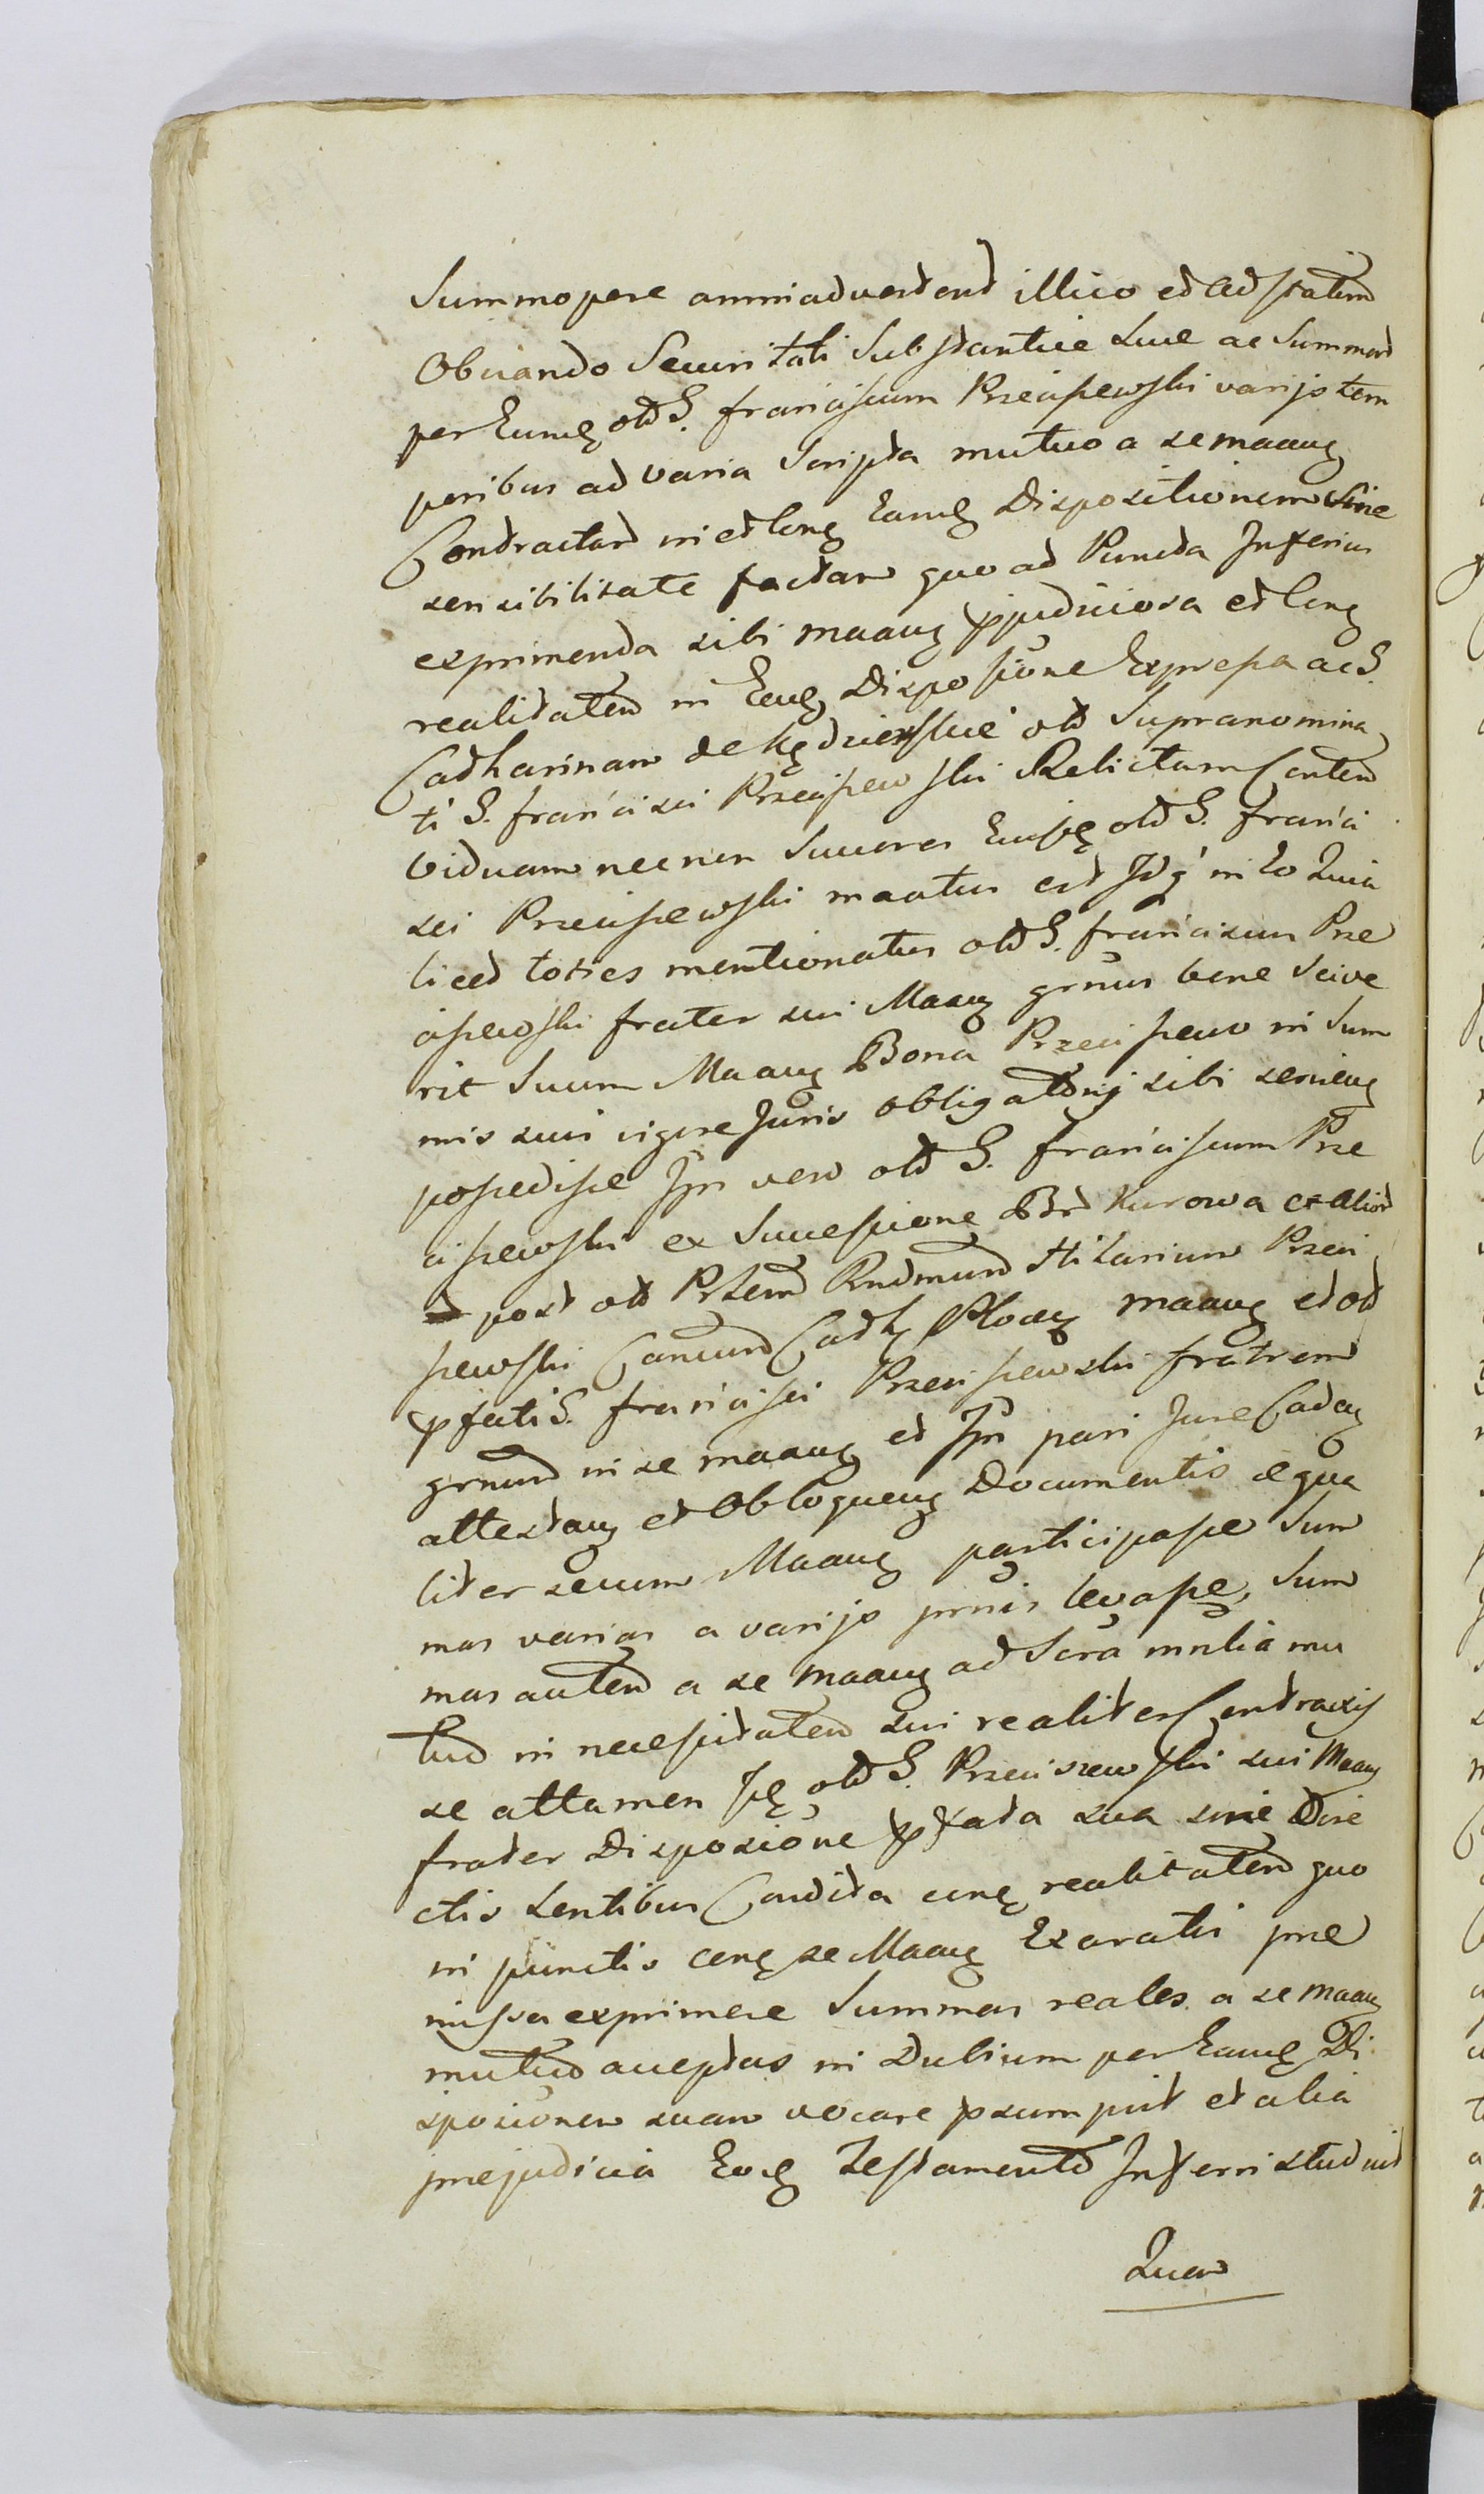 Summopere animadvertend illico et ad statim
Obviando Securitati Substantiae Suae ac Summar
per Eund olt G. Franciscum Przeciszewski varijs tem
poribus ad varia Scripta mutuo a se maan
Contractar in et con Eand Dispositionem Sine
sensibilitate factam quo ad Puncta Inferius
exprimenda sibi maan pjudiciosa et con
realitatem in Ead Disposione Expressa ac G.
Catharinam de Kędzierskie olt Supranomina
ti G. Francisci Przeciszewski Relictam Conten
Viduam necnon Succores Eiusd olt G. Franci
sci Przeciszewski maatur est Idq in Eo Quia
licet toties mentionatus olt G. Franciscus Prze
ciszewski frater sui Maan grnus bene scive
rit Suum Maan Bona Przeciszewo in Sum
mis sui vigore Juris obligatorij sibi servien
possedisse Ipm vero olt G. Franciscum Prze
ciszewski ex Successione Bor Kurowa et alior
post olt Prlem Rndmum Hilarium Przeci
szewski Canum Cath Ploce maan et olt
pfati G. Francisci Przeciszewski fratrem
grnum in se maan et Ipm pari Jure Cadan
attestan et Obloquen Documentis aequa
liter secum Maan participasse Sum
mas varias a varijs prnis levasse, Sum
mas autem a se maan ad Scra mnlia mu
tuo in necessitatem sui realiter Contraxis
se attamen Id olt G. Przeciszewski sui Maan
frater Disposione pfata sua sine Dire
ctis Sentibus Condita conq realitatem quo
in punctis conq se Maan Exaratis prae
missa exprimere Summas reales a se maan
mutuo acceptas in Dubium per Eand Di
sposionem suam vocare psumpsit et alia
praejudicia Eod Testamento Inferri studuit
Quar